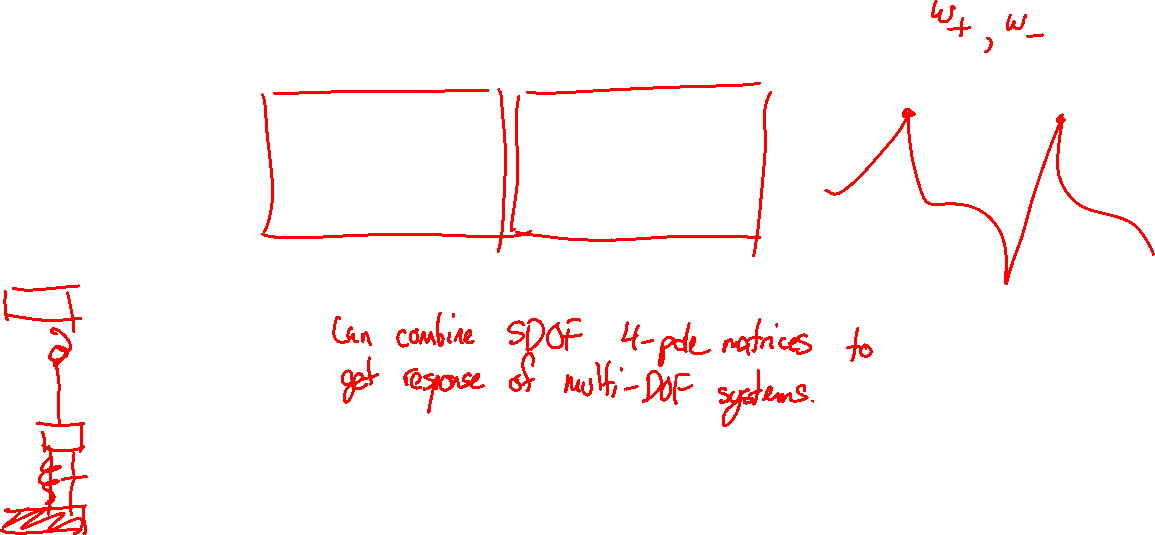 ω+, ω−
Can combine SDOF 4-pole matrices to
get response of multi-DOF systems.